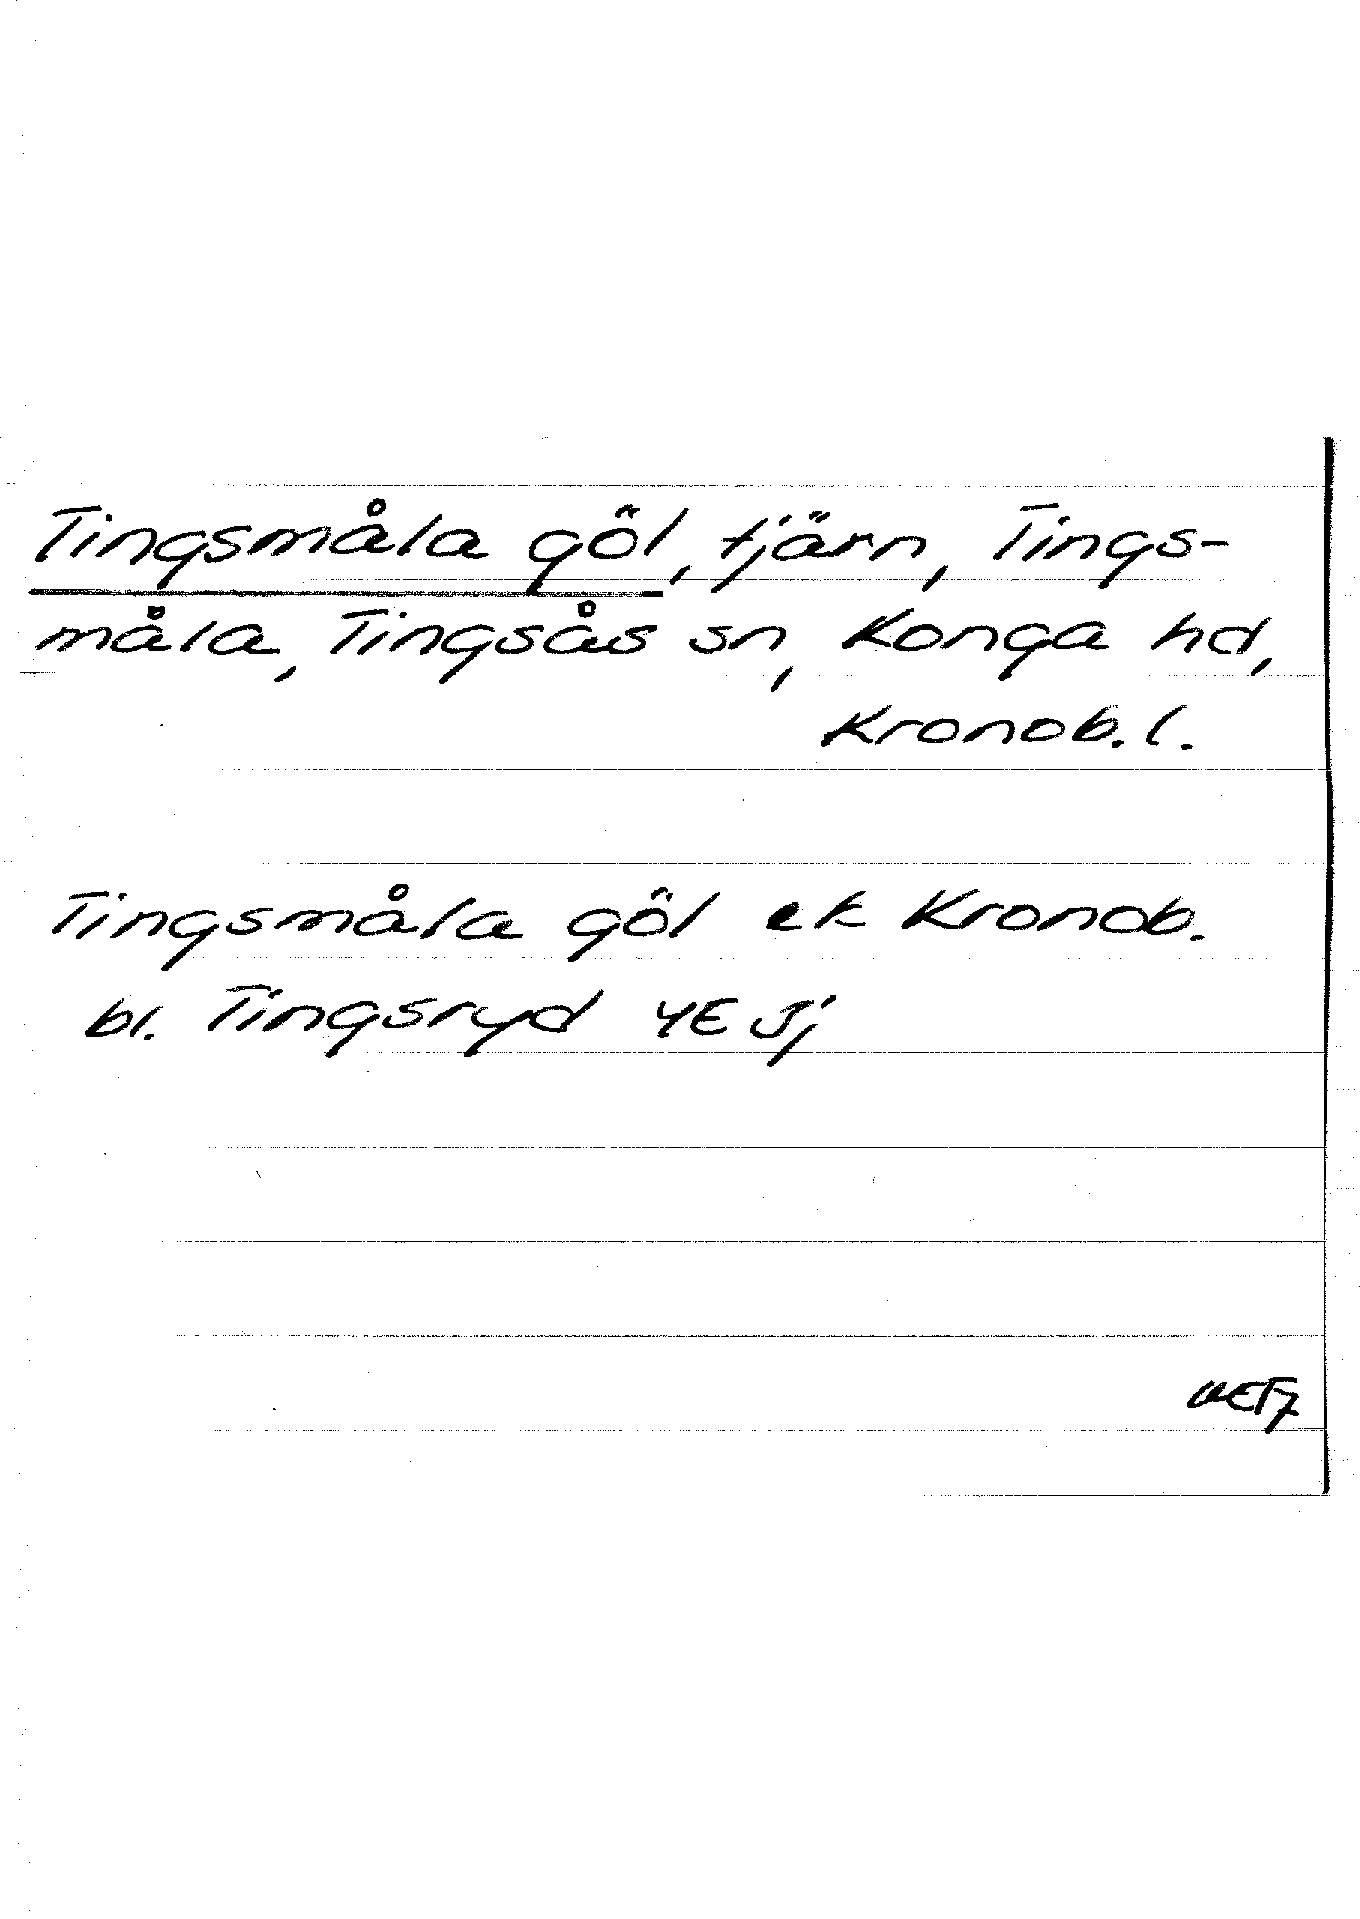 Tingsmåla göl, tjärn, Tings-
måla, Tingsås sn, Konga hd,
Kronob. l.
Tingsmåla göl ek Kronob.
bl. Tingsryd 4E Sj